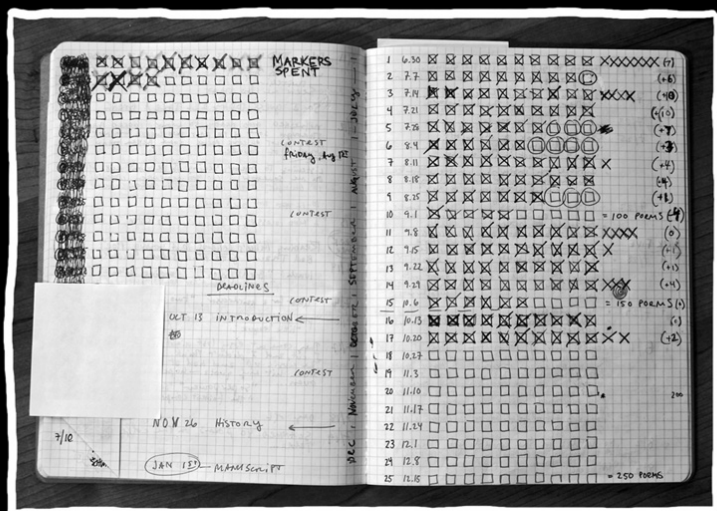 MARKERS
SPENT
CONTEST
CONTEST
DEADLINES
CONTEST
OCT 13 INTRODUCTION
CONTEST
NOV 26 HISTORY
7/12
JAN 1ST MANUSCRIPT
DEC | NOVEMBER | OCTOBER | SEPTEMBER | AUGUST | JULY
1 6.30 XXXXXXX (+7)
2 7.7 (+6)
3 7.14 XXXX (+10)
4 7.21 (+10)
5 7.28 (+7)
6 8.4 (+3)
7 8.11 X (+4)
8 8.18
9 8.25 (+1)
10 9.1 = 100 POEMS (-4)
11 9.8 XXXX (0)
12 9.15 X (+1)
13 9.22 (+1)
14 9.29 XXX (+4)
15 10.6 = 150 POEMS (0)
16 10.13 (0)
17 10.20 XX (+2)
18 10.27
19 11.3
20 11.10 200
21 11.17
22 11.24
23 12.1
24 12.8
25 12.15 = 250 POEMS